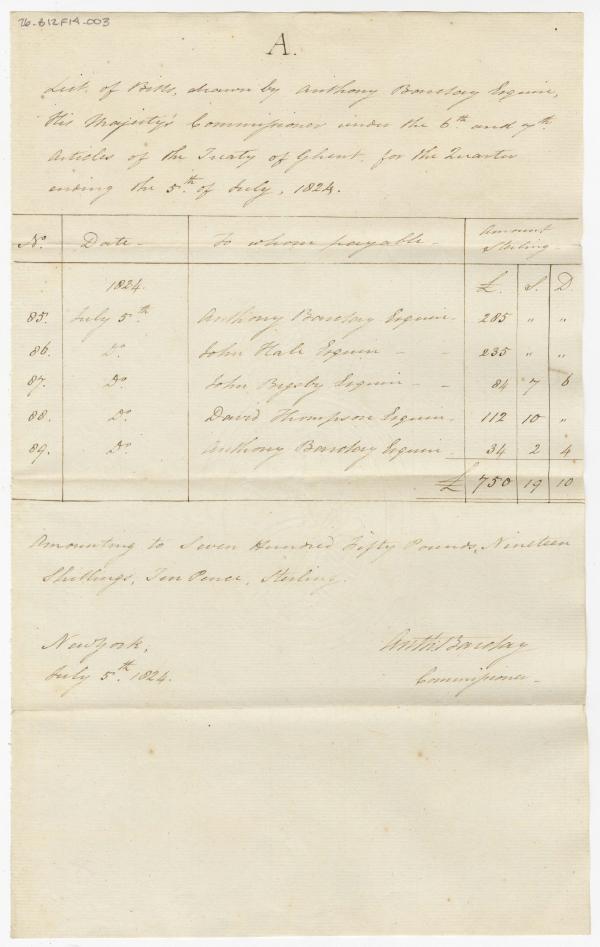 26-B12F14-003
A.
List of Bills, drawn by Anthony Barclay Esquire,
His Majesty's Commissioner under the 6th and 7th
Articles of the Treaty of Ghent, for the Quarter
ending the 5th of July, 1824.
No. Date To whom payable Amount Sterling
1824. £. S. D.
85. July 5th Anthony Barclay Esquire 285 " "
86. Do John Hale Esquire 235 " "
87. Do John Bigsby Esquire 84 7 6
88. Do David Thompson Esquire 112 10 "
89. Do Anthony Barclay Esquire 34 2 4
£ 750 19 10
Amounting to Seven Hundred Fifty Pounds, Nineteen
Shillings, Ten Pence, Sterling.
New York, Anth: Barclay
July 5th 1824. Commissioner